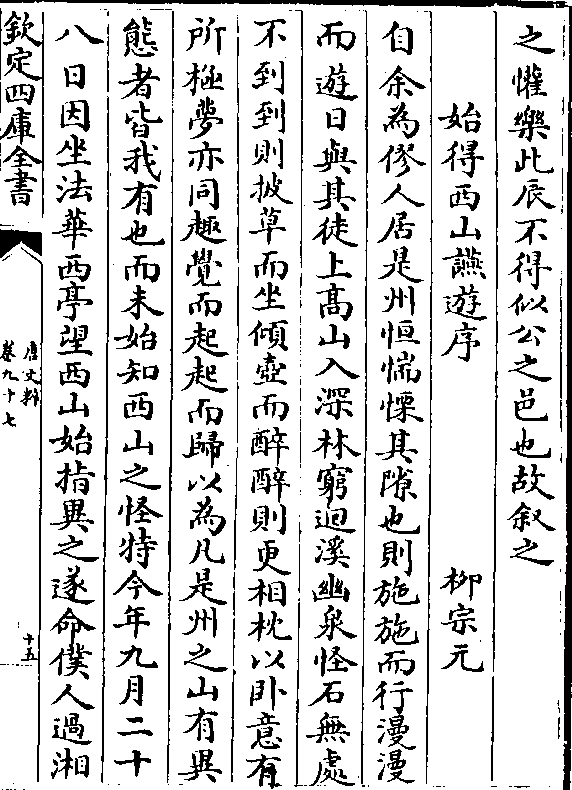 之懽樂此辰不得似公之邑也故叙之
始得西山讌遊序 柳宗元
自余為僇人居是州恒惴慄其隙也則施施而行漫漫
而遊日與其徒上髙山入深林窮迴溪幽泉怪石無處
不到到則披草而坐傾壺而醉醉則更相枕以卧意有
所極夢亦同趣覺而起起而歸以為凡是州之山有異
態者皆我有也而未始知西山之怪特今年九月二十
八日因坐法華西亭望西山始指異之遂命僕人過湘
欽定四庫全書
唐文粹
卷九十七
十五